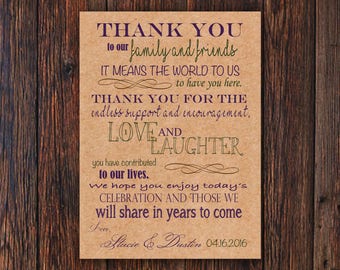 THANK YOU
to our family and friends
IT MEANS THE WORLD TO US
to have you here.
THANK YOU FOR THE
endless support and encouragement,
LOVE AND
LAUGHTER
you have contributed
to our lives.
We hope you enjoy today's
CELEBRATION AND THOSE WE
will share in years to come
Love,
Stacie & Dustin 04.16.2016